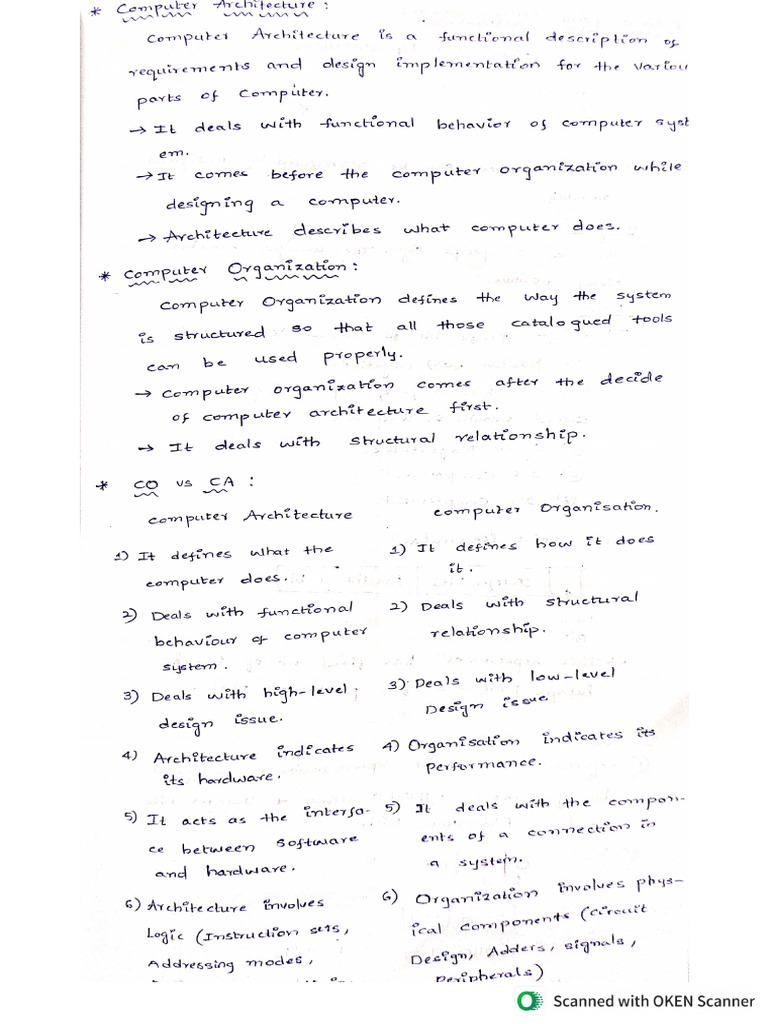 * Computer Architecture :
Computer Architecture is a functional description of
requirements and design implementation for the variou
parts of computer.
→ It deals with functional behavior of computer syst
em.
→ It comes before the computer organization while
designing a computer.
→ Architecture describes what computer does.
* Computer Organization :
Computer Organization defines the way the system
is structured so that all those catalogued tools
can be used properly.
→ Computer organization comes after the decide
of computer architecture first.
→ It deals with structural relationship.
* CO vs CA :
Computer Architecture
1) It defines what the
computer does.
2) Deals with functional
behaviour of computer
system.
3) Deals with high-level
design issue.
4) Architecture indicates
its hardware.
5) It acts as the interfa-
ce between software
and hardware.
6) Architecture involves
Logic (Instruction sets,
Addressing modes,
computer Organisation.
1) It defines how it does
it.
2) Deals with structural
relationship.
3) Deals with low-level
Design issue
4) Organisation indicates its
Performance.
5) It deals with the compon-
ents of a connection in
a system.
6) Organization involves phys-
ical components (circuit
Design, Adders, signals,
Peripherals)
Scanned with OKEN Scanner